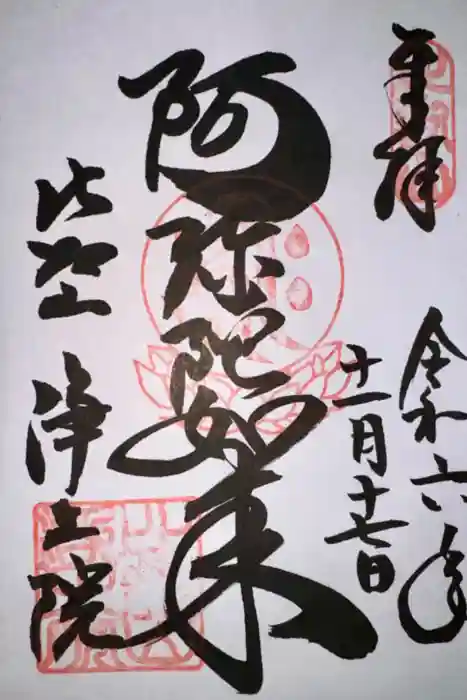 奉拝
令和六年
十一月十七日
阿弥陀如来
比叡山
浄土院